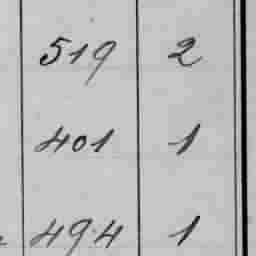 519 2
401 1
494 1